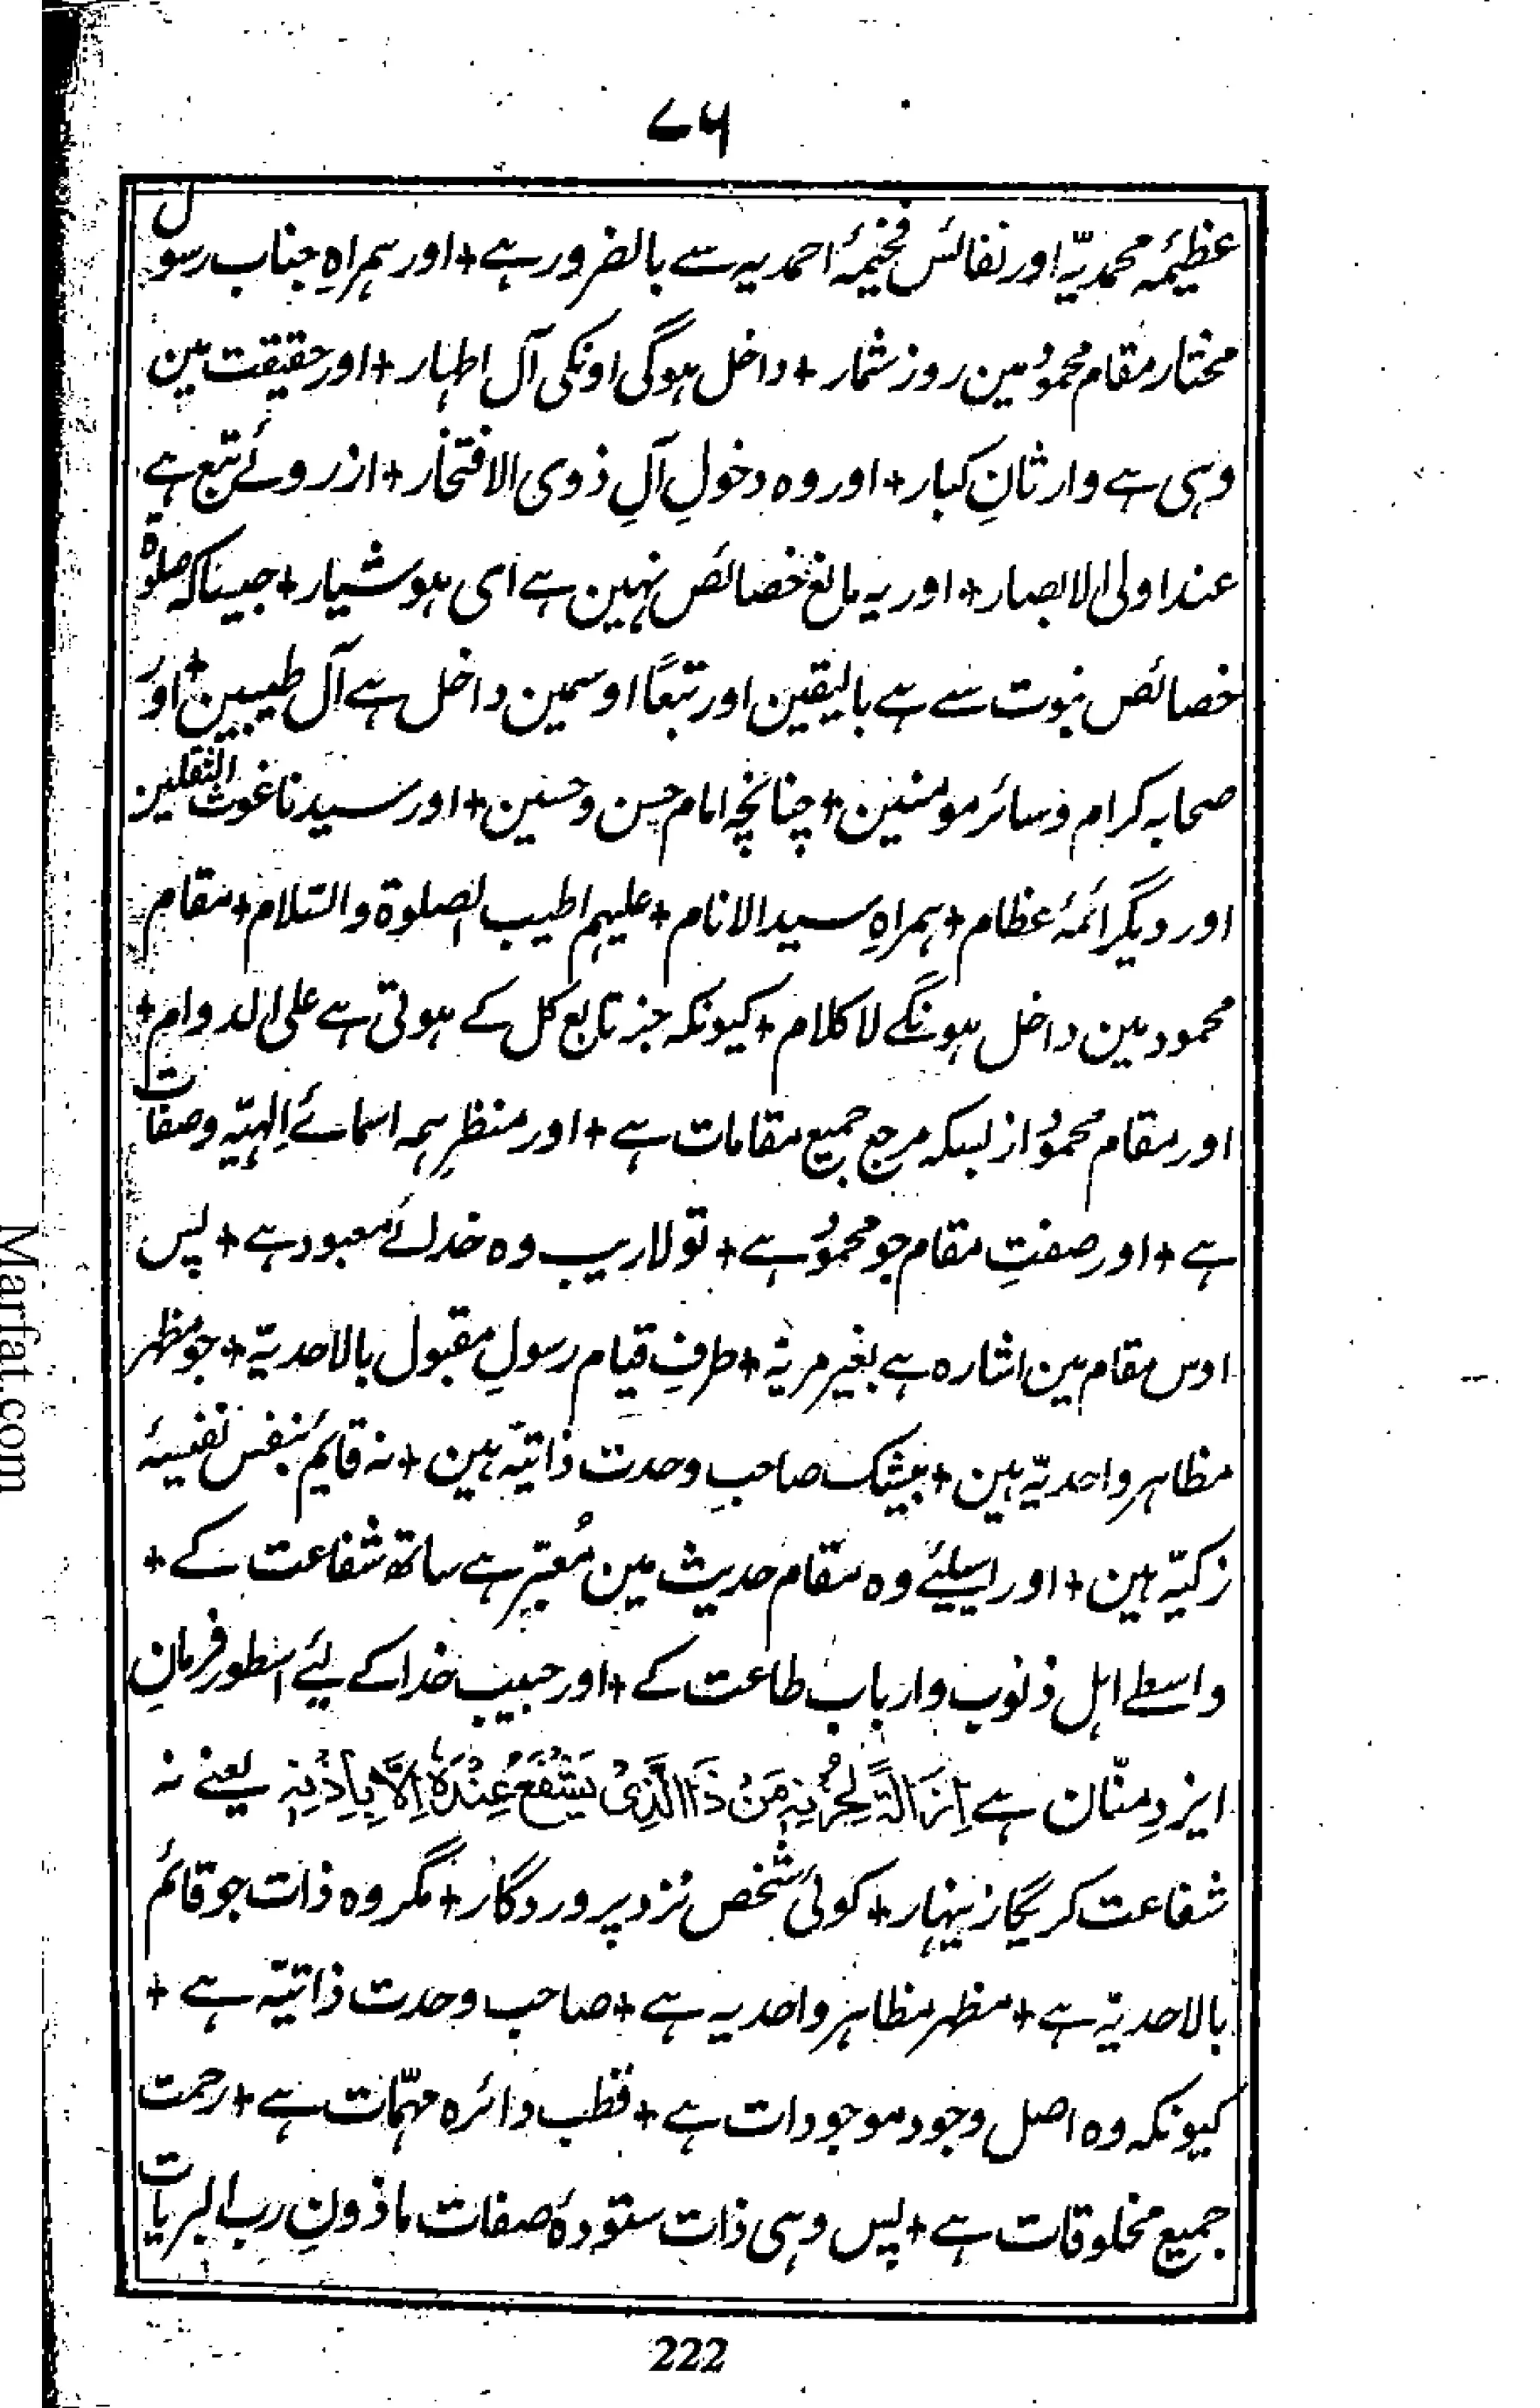 ۷۶
عظیمۂ محمدیّہ اور نفائس فخیمۂ احمدیہ سے بالضرور ہے + اور ہمراہِ جناب رسول
مختار مقام محمودؐ مین روز شمار + داخل ہوگی اونکی آل اطہار + اور حقیقت مین
وہی ہے وارثانِ کبار + اور وہ دخولِ آلِ ذوی الافتخار + از روئے تبع ہے
عند اولی الابصار + اور یہ مانع خصائص نہین ہے ای ہوشیار + جیساکہ صلوٰۃ
خصائص نبوت سے ہے بالیقین اور تبعاً اوسمین داخل ہے آل طیبین + اور
صحابہ کرام وسائر مومنین + چنانچہ امام حسن وحسین + اور سیدنا غوث الثقلین
اور دیگر ائمۂ عظام + ہمراہِ سید الانام + علیہم اطیب الصلوۃ والسّلام + مقام
محمود مین داخل ہونگے لاکلام + کیونکہ جز تابع کل کے ہوتی ہے علی الدوام +
اور مقام محمودؐ از بسکہ مرجع جمیع مقامات ہے + اور منظرِ ہمہ اسمائے اِلٰہیّہ وصفات
ہے + اور صفتِ مقام جو محمودؐ ہے + تو لاریب وہ خدائے معبود ہے + پس
اوس مقام مین اشارہ ہے بغیر مریہ + طرفِ قیام رسولِ مقبول بالاحدیّہ + جو مظہر
مظاہر واحدیّہ ہین + بیشک صاحبِ وحدت ذاتیّہ ہین + نہ قایم بنفس نفیسۂ
زکیّہ ہین + اور اسیلئے وہ مقام حدیث مین مُعبّر ہے ساتھ شفاعت کے +
واسطے اہل ذنوب وارباب طاعت کے + اور حبیب خدا کے لئے اسطور فرمانِ
ایزدِ منّان ہے مَنْ ذَا الَّذِیْ یَشْفَعُ عِنْدَہٗ اِلَّا بِاِذْنِہٖ یعنے نہ
شفاعت کریگا زینہار + کوئی شخص نزد پروردگار + مگر وہ ذات جو قائم
بالاحدیّہ ہے + مظہر مظاہر واحدیہ ہے + صاحب وحدت ذاتیّہ ہے +
کیونکہ وہ اصل وجود موجودات ہے + قطب دائرہ مہمّات ہے + رحمت
جمیع مخلوقات ہے + پس وہی ذات ستودۂ صفات ماذونِ رب البریات
222
Marfat.com